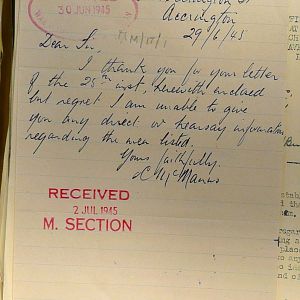 30 JUN 1945
Accrington
29/6/45
Dear Sir,
I thank you for your letter
of the 25th inst, herewith enclosed
but regret I am unable to give
you any direct or hearsay information
regarding the men listed.
Yours faithfully.
C McManus
RECEIVED
2 JUL 1945
M. SECTION